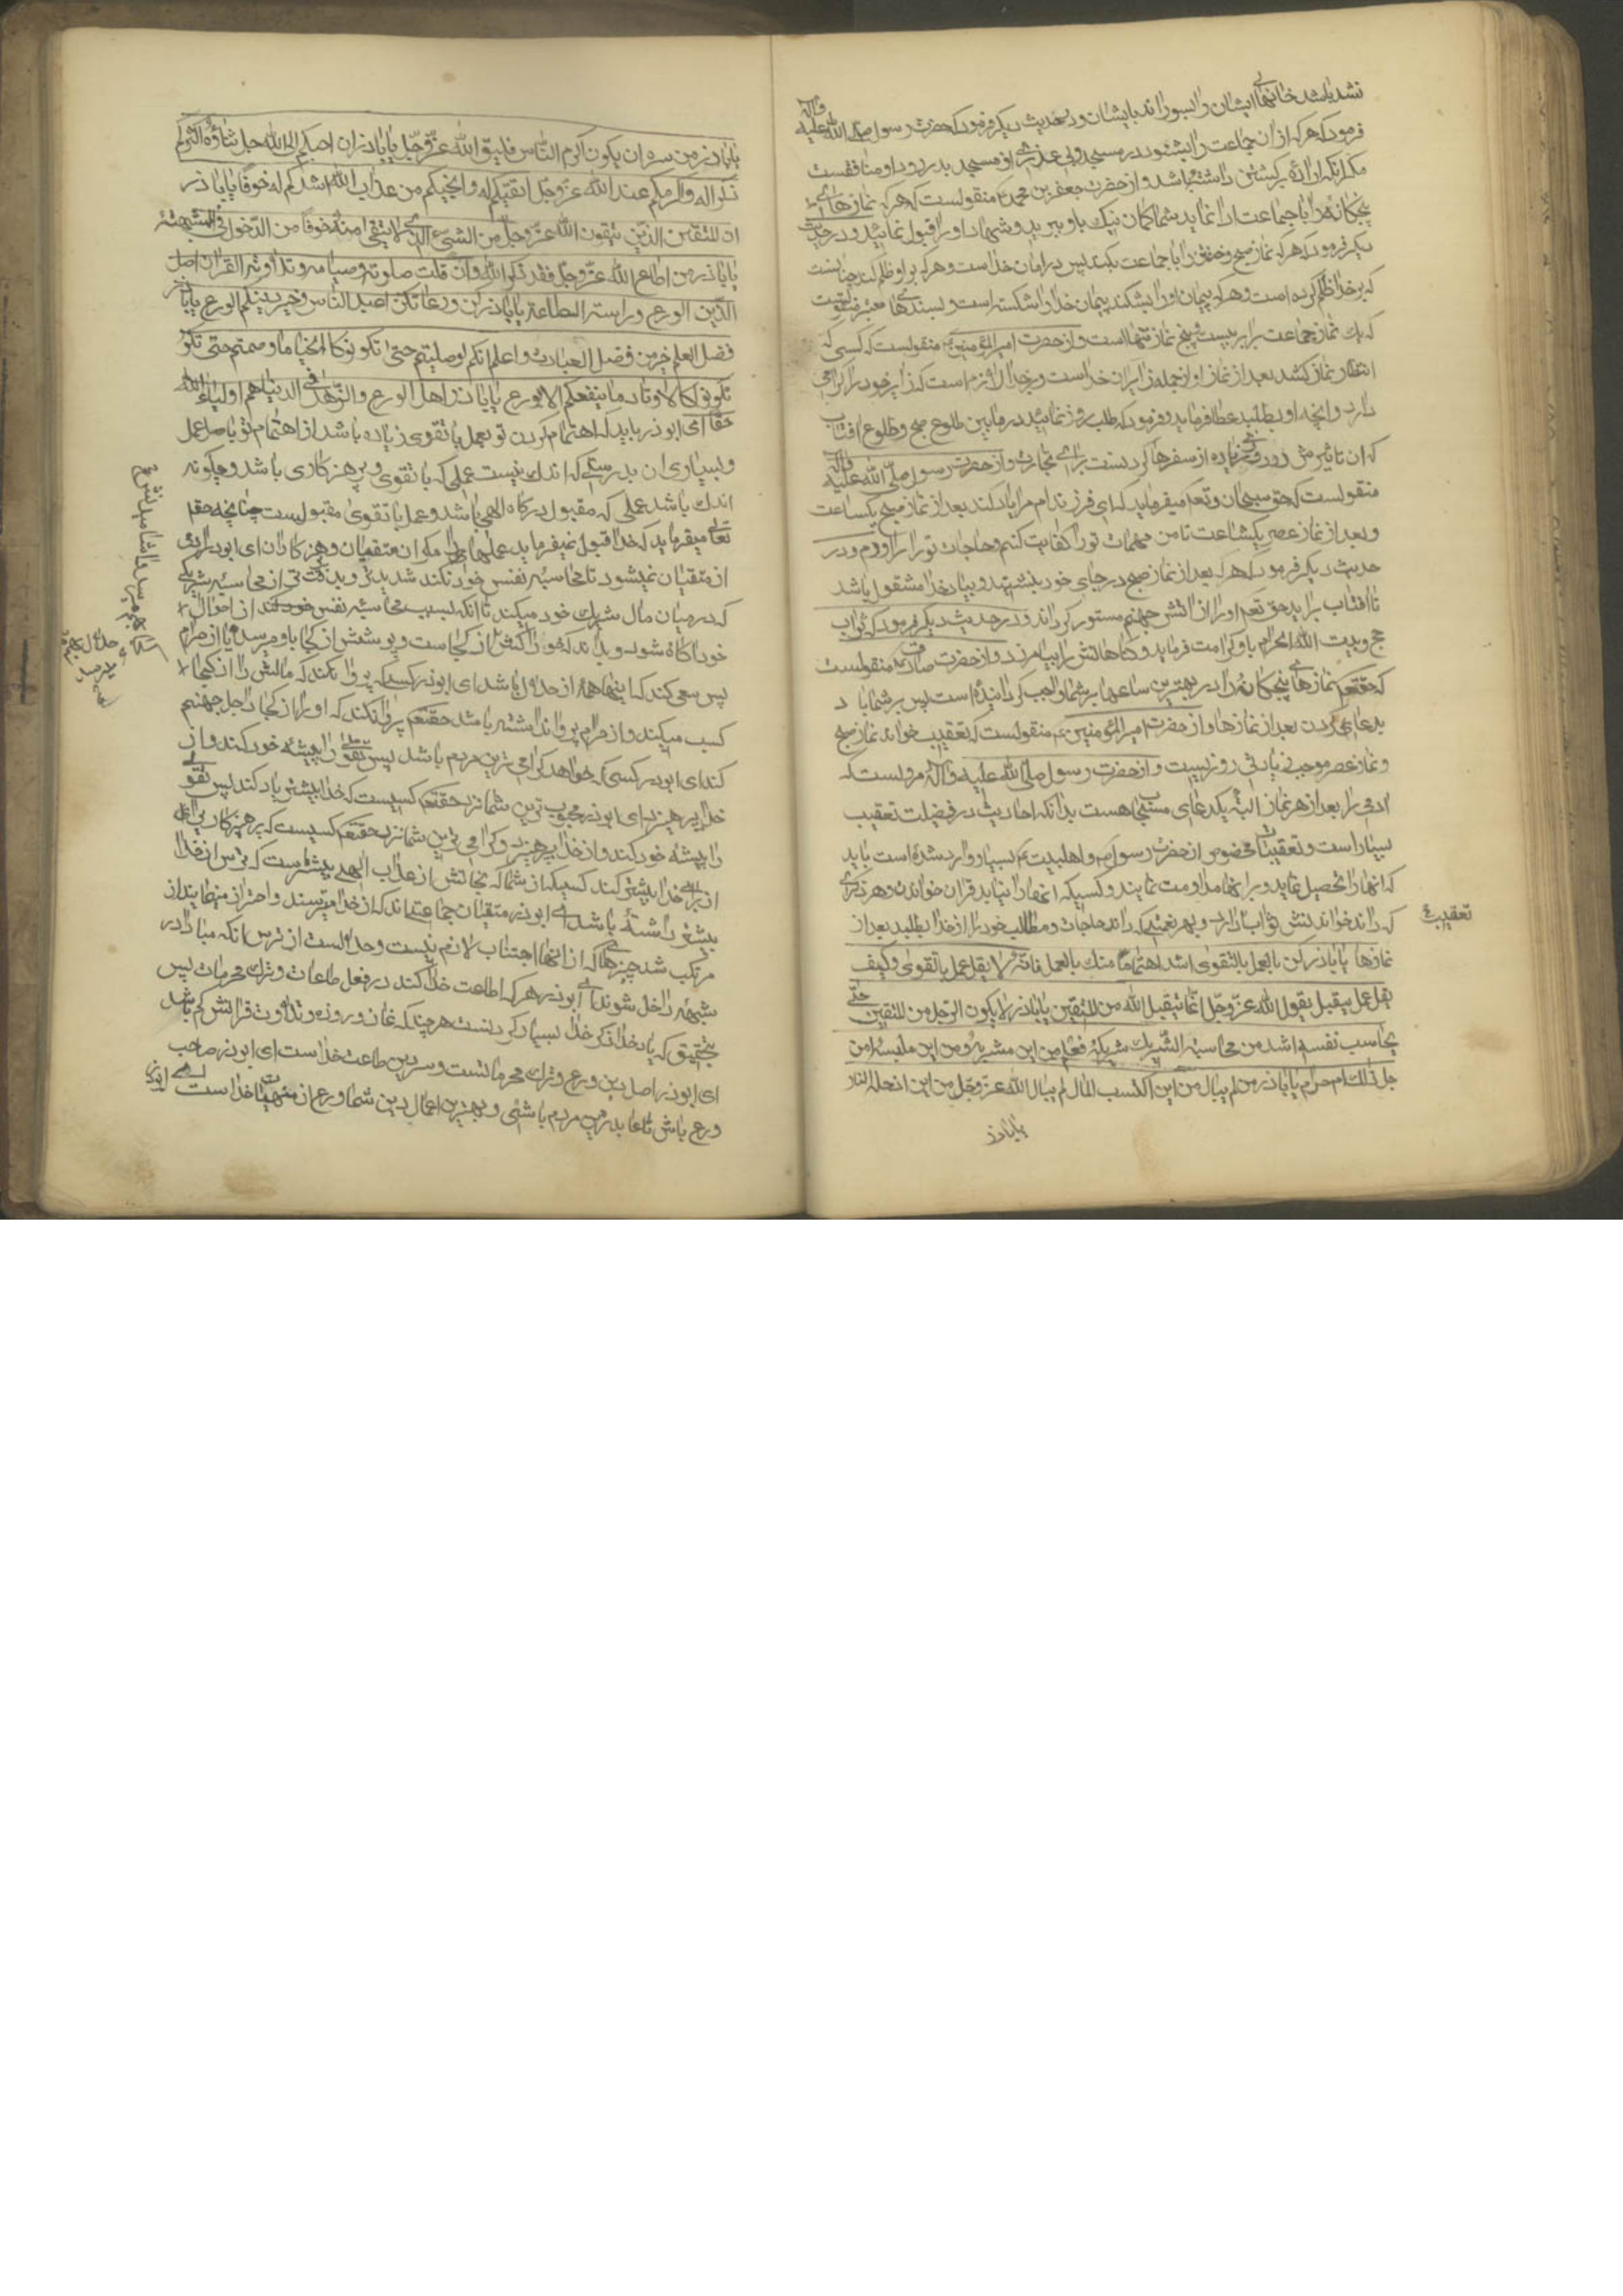 نشده باشد خانهای ایشان را بسوزاند بایشان و در حدیث دیگر فرمود که حضرت رسول صلی الله علیه وآله
فرمود که هر که اذان جماعت را بشنود در مسجد و بی عذری از مسجد بدر رود او منافقست
مگر آنکه اراده برگشتن داشته باشد و از حضرت جعفر بن محمد ع منقولست که هر که نمازهای
پنجگانه را با جماعت ادا نماید شما گمان نیک باو ببرید و شهادت او را قبول نمائید و در حدیث
دیگر فرمود که هر که نماز صبح و خفتن را با جماعت بکند پس در امان خداست و هر که بر او ظلم کند چنانست
که بر خدا ظلم کرده است و هر که پیمان او را بشکند پیمان خدا را شکسته است و بسندهای معتبر منقولست
که یک نماز جماعت برابر بیست و پنج نماز تنها است و از حضرت امیر المؤمنین ع منقولست که کسی که
انتظار نماز کشد بعد از نماز او از جمله زایران خداست و بر خدا لازم است که زایر خود را گرامی
دارد و آنچه او بطلبد عطا فرماید و فرمود که طلب روزی نمائید در مابین طلوع صبح و طلوع آفتاب
که آن تاثیرش در روزی زیاده از سفرها کردنست برای تجارت و از حضرت رسول صلی الله علیه وآله
منقولست که حق سبحانه و تعالی میفرماید که ای فرزند آدم مرا یاد کن بعد از نماز صبح یکساعت
و بعد از نماز عصر یکساعت تا من مهمات تو را کفایت کنم و حاجات تو را برآورم و در
حدیث دیگر فرمود که هر که بعد از نماز صبح در جای خود بنشیند و بیاد خدا مشغول باشد
تا آفتاب برآید حق تعالی او را از آتش جهنم مستور گرداند و در حدیث دیگر فرمود که ثواب
حج بیت الله الحرام باو کرامت فرماید و گناهانش را بیامرزد و از حضرت صادق ع منقولست
که حقتعالی نمازهای پنجگانه را در بهترین ساعتها بر شما واجب گردانیده است پس بر شما باد
بدعا کردن بعد از نمازها و از حضرت امیر المؤمنین ع منقولست که تعقیب خواندن نماز صبح
و نماز عصر موجب زیادتی روزیست و از حضرت رسول صلی الله علیه وآله مرویست که
آدمی را بعد از هر نماز البته یک دعای مستجاب هست بدانکه احادیث در فضیلت تعقیب
بسیار است و تعقیبات مخصوص از حضرت رسول ص و اهلبیت ع بسیار وارد شده است باید
که آنها را تحصیل نماید و بر آنها مداومت نمایند و کسیکه آنها را نیابد قرآن خواندن و هر ذکری
که داند خواندنش ثواب دارد و بهر نعمتی که داند حاجات و مطالب خود را از خدا بطلبد بعد از
تعقیب
نمازها یا باذر کن بالعمل بالتقوی اشد اهتماما منک بالعمل فانه لا یقل عمل بالتقوی وکیف
یقل عمل یتقبل یقول الله عز وجل انما یتقبل الله من المتقین یا باذر لا یکون الرجل من المتقین حتی
یحاسب نفسه اشد من محاسبة الشریک شریکه فیعلم من این مشربه ومن این ملبسه امن
حل ذلک ام حرام یا باذر من لم یبال من این اکتسب المال لم یبال الله عز وجل من این ادخله النار
یا باذر
یا باذر من سره ان یکون اکرم الناس فلیتق الله عز وجل یا باذر ان احبکم الی الله جل ثناؤه اکثرکم
ذکرا له واکرمکم عند الله عز وجل اتقیکم له وانجیکم من عذاب الله اشدکم له خوفا یا باذر
ان المتقین الذین یتقون الله عز وجل من الشیء الذی لا یتقی منه خوفا من الدخول فی الشبهة
یا باذر من اطاع الله عز وجل فقد ذکر الله وان قلت صلوته وصیامه وتلاوته القرآن اصل
الدین الورع وراسه الطاعة یا باذر کن ورعا تکن اعبد الناس وخیر دینکم الورع یا باذر
فضل العلم خیر من فضل العبادة واعلم انکم لو صلیتم حتی تکونوا کالحنایا وصمتم حتی تکو
تکونوا کالاوتاد ما ینفعکم الا بورع یا باذر ان اهل الورع والزهد فی الدنیا هم اولیاء الله
حقا ای ابوذر باید که اهتمام کردن تو بعمل با تقوی زیاده باشد از اهتمام تو باصل عمل
و بسیاری آن بدرستی که اندک نیست عملی که با تقوی و پرهیزکاری باشد و چگونه
اندک باشد عملی که مقبول درگاه الهی باشد و عمل با تقوی مقبولست چنانچه حق
تعالی میفرماید که خدا قبول نمیفرماید عملها را مگر از متقیان و پرهیزکاران ای ابوذر آدمی
از متقیان نمیشود تا محاسبه نفس خود نکند شدیدتر و بدقت تر از محاسبه شریکی
که در میان مال شریک خود میکند تا آنکه بسبب محاسبه نفس خود کند از احوال
خود آگاه شود و بداند که خوراکش از کجاست و پوشش از کجا باو میرسد آیا از حرام
پس سعی کند که اینها همه از حلال باشد ای ابوذر کسی که پروا نکند که مالش را از کجا
کسب میکند و از حرام پروا نداشته باشد حقتعالی پروا نکند که او را از کجا داخل جهنم
کند ای ابوذر کسی که خواهد گرامی ترین مردم باشد پس تقوی را پیشه خود کند و از
خدا بپرهیزد ای ابوذر محبوب ترین شما نزد حقتعالی کسیست که خدا را بیشتر یاد کند پس تقوی
را پیشه خود کند و از خدا بپرهیزد و گرامی ترین شما نزد حقتعالی کسیست که پرهیزکاری
از برای خدا بیشتر کند کسیکه از شما که نجاتش از عذاب الهی بیشتر است که ترس از خدا
بیشتر داشته باشد ای ابوذر متقیان جماعتی‌اند که از خدا میترسند و احتراز مینمایند از
مرتکب شدن چیزهائی که از آنها اجتناب لازم نیست و حلالست از ترس آنکه مبادا در
شبهه داخل شوند ای ابوذر هر که اطاعت خدا کند در فعل طاعات و ترک محرمات پس
بتحقیق که یاد خدا و ذکر خدا بسیار کردنست هر چند که نماز و روزه و تلاوت قرآنش کم باشد
ای ابوذر اصل دین ورع و ترک محرماتست و سر دین طاعت خداست ای ابوذر صاحب
ورع باش تا عابدترین مردم باشی و بهترین اعمال دین شما ورع از منهیات خداست ای ابوذر